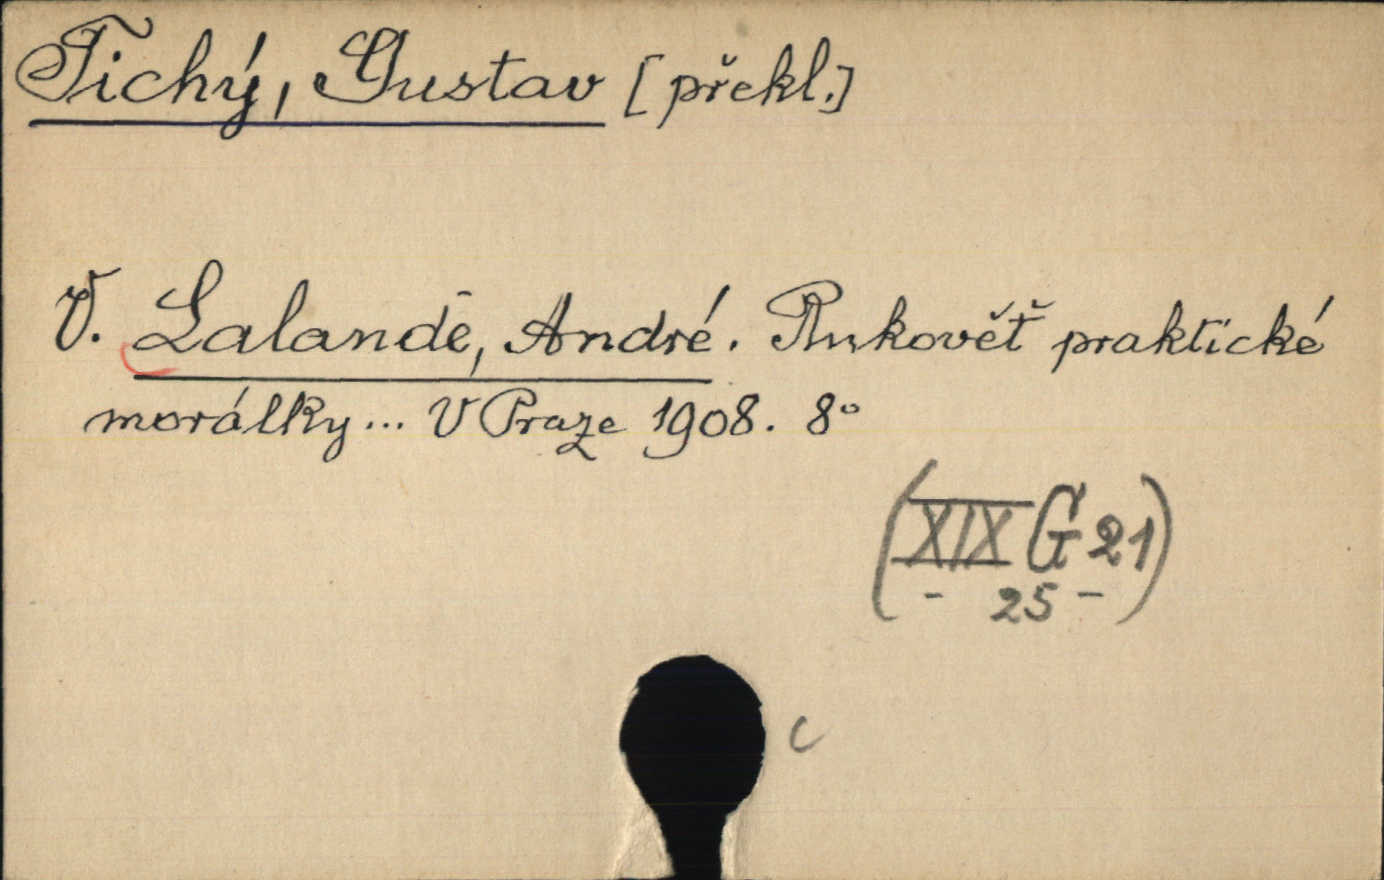 Tichý, Gustav [překl.]
V. Lalande, André. Rukověť praktické
morálky... V Praze 1908. 8°
(XIX G 21)
- 25 -
c